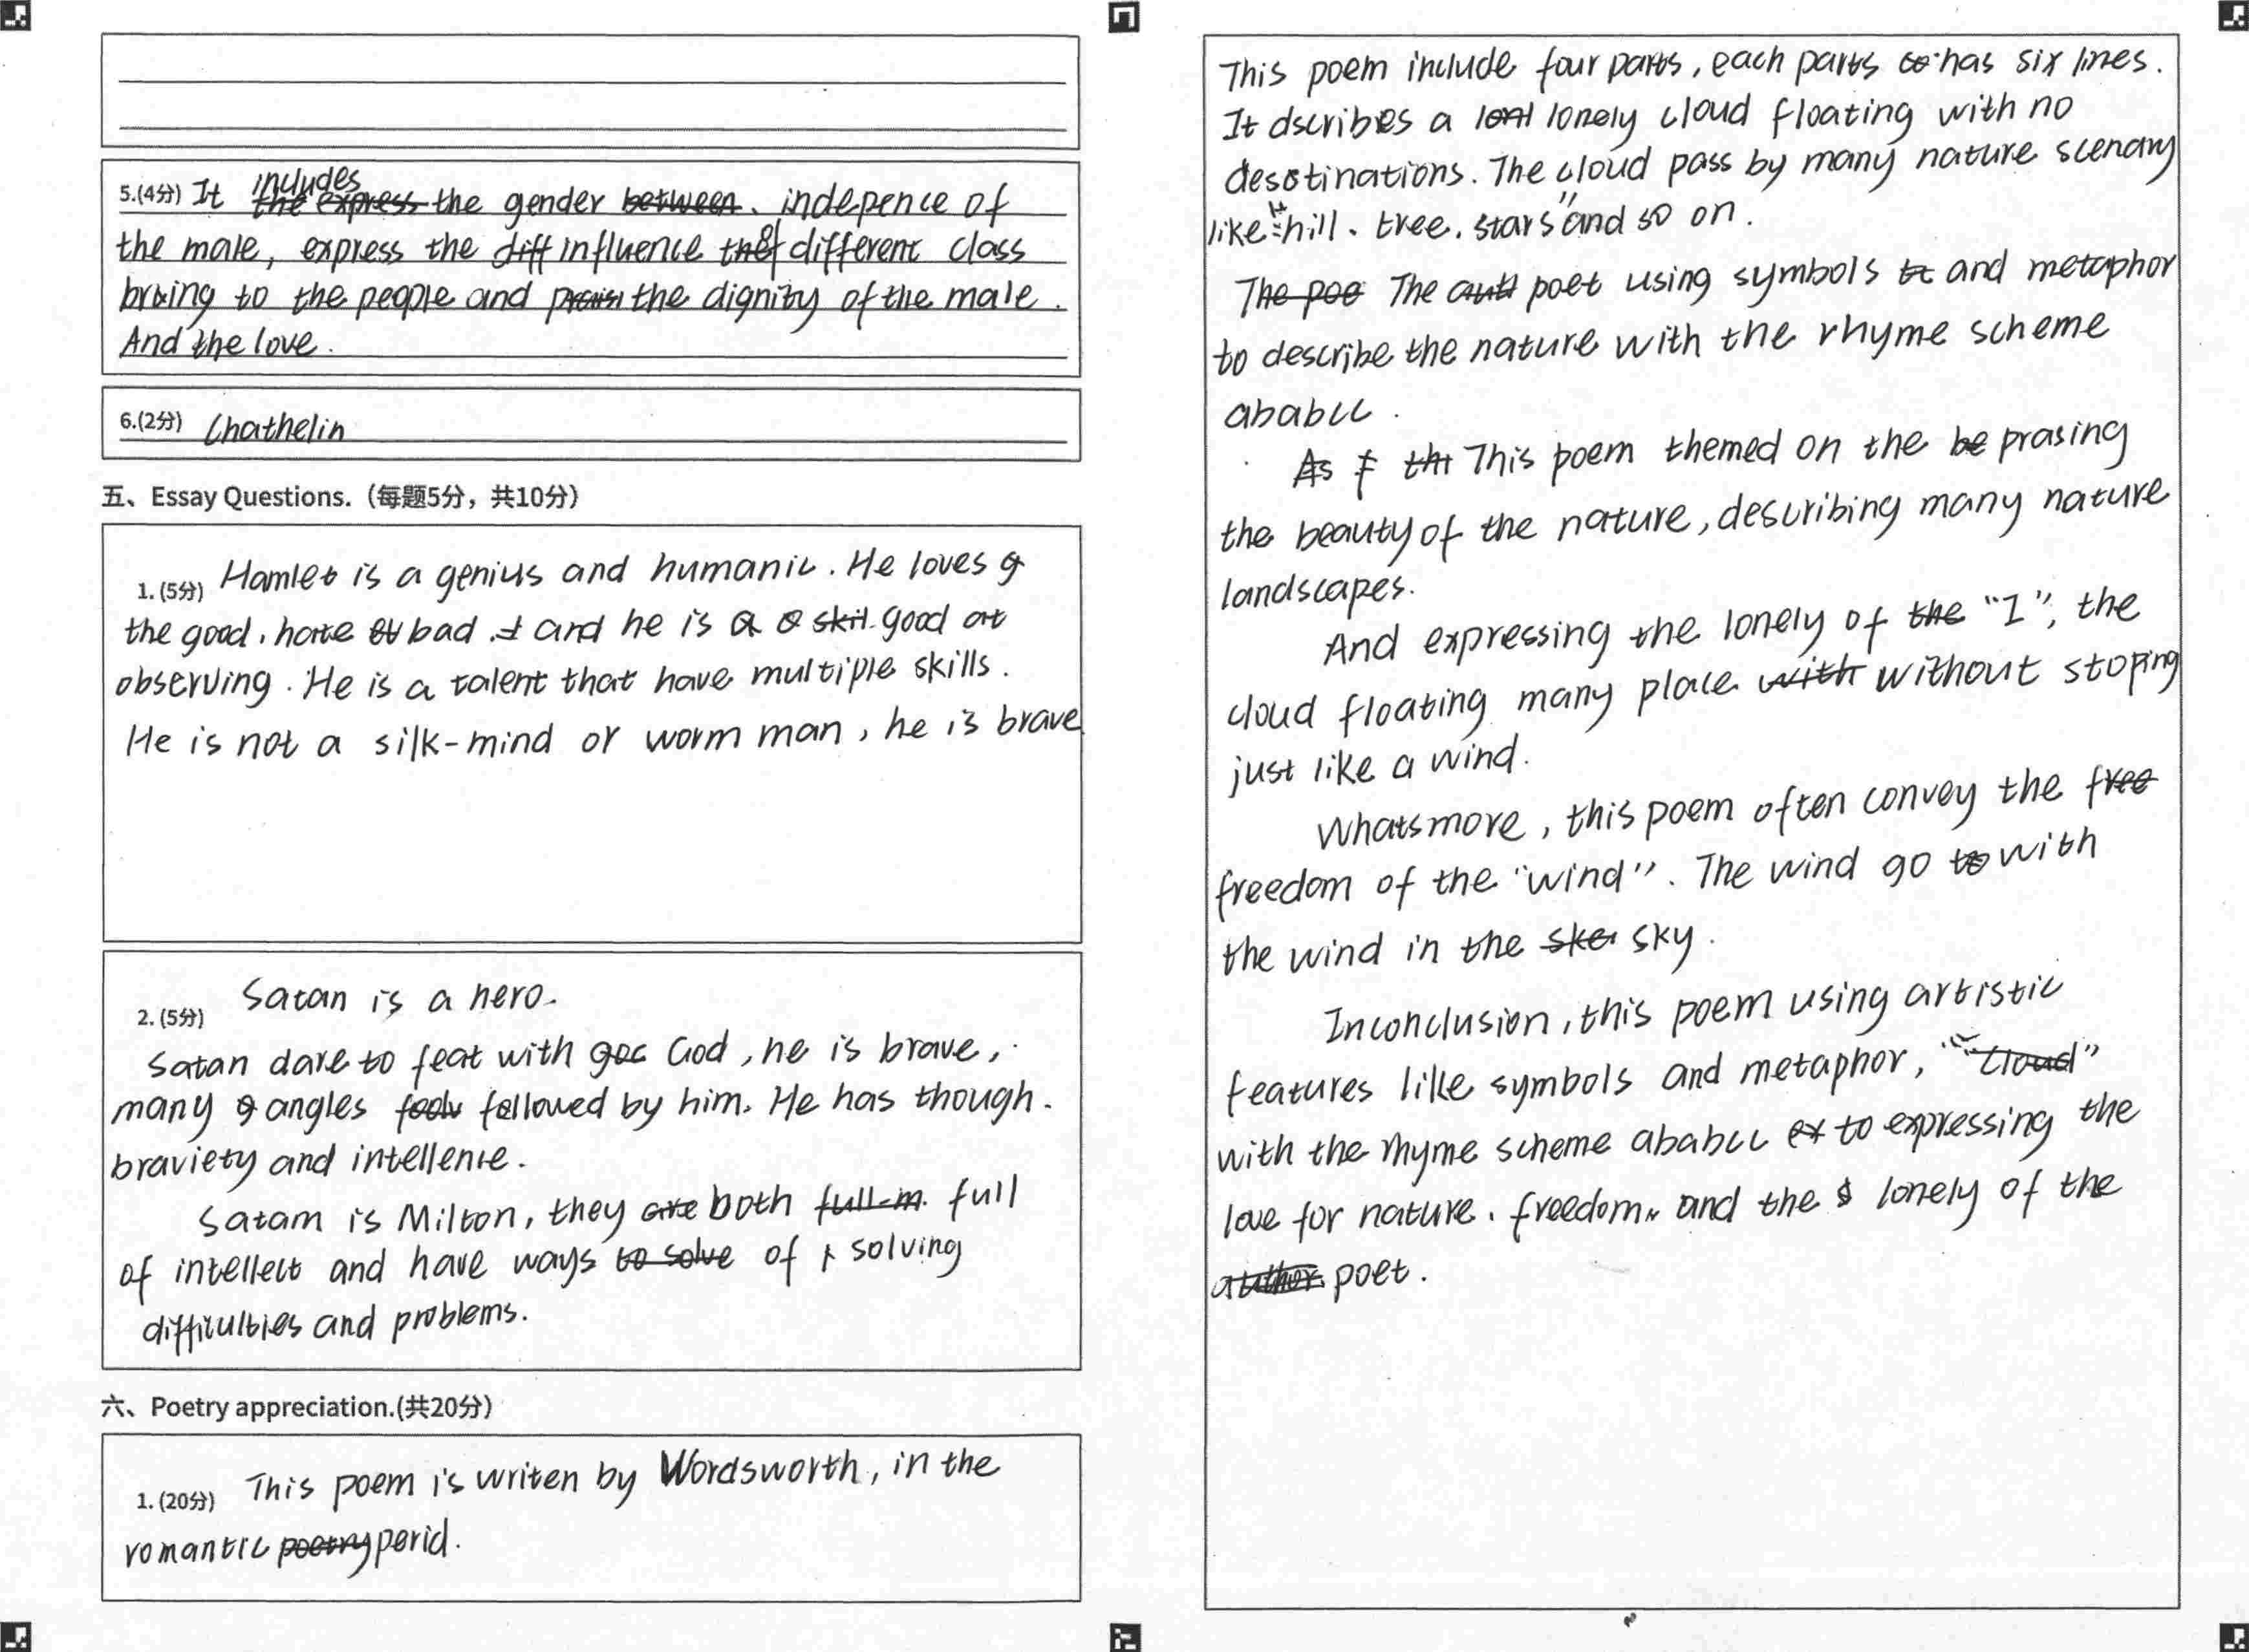 5.(4分) It includes the gender, indepence of
the male, express the influence of different class
bring to the people and the dignity of the male.
And the love.
6.(2分) Chathelin
五、Essay Questions.（每题5分，共10分）
1. (5分) Hamlet is a genius and humanic. He loves
the good, hate bad. and he is a good at
observing. He is a talent that have multiple skills.
He is not a silk-mind or worm man, he is brave
2. (5分) Satan is a hero.
Satan dare to feat with God, he is brave,
many angles followed by him. He has though.
braviety and intellence.
Satam is Milton, they both full
of intellect and have ways of solving
difficulties and problems.
六、Poetry appreciation.(共20分)
1. (20分) This poem is writen by Wordsworth, in the
romantic perid.
This poem include four parts, each parts has six lines.
It dscribes a lonely cloud floating with no
desstinations. The cloud pass by many nature scenary
like "hill、tree、stars" and so on.
The poet using symbols and metaphor
to describe the nature with the rhyme scheme
ababcc.
This poem themed on the prasing
the beauty of the nature, describing many nature
landscapes.
And expressing the lonely of "I", the
cloud floating many place without stoping
just like a wind.
Whatsmore, this poem often convey the
freedom of the "wind". The wind go with
the wind in the sky.
Inconclusion, this poem using artistic
features like symbols and metaphor,
with the rhyme scheme ababcc to expressing the
love for nature、freedom, and the lonely of the
poet.